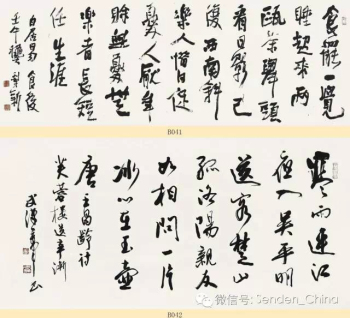 食罷一覺
睡起來兩
甌茶舉頭
看日影已
復西南斜
樂人惜日促
憂人厭年
賒無憂無
樂者長短
任生涯
白居易食後
壬午
B041
寒雨連江
夜入吳平明
送客楚山
孤洛陽親友
如相問一片
冰心在玉壺
唐王昌齡詩
芙蓉樓送辛漸
B042
微信号: Senden_China